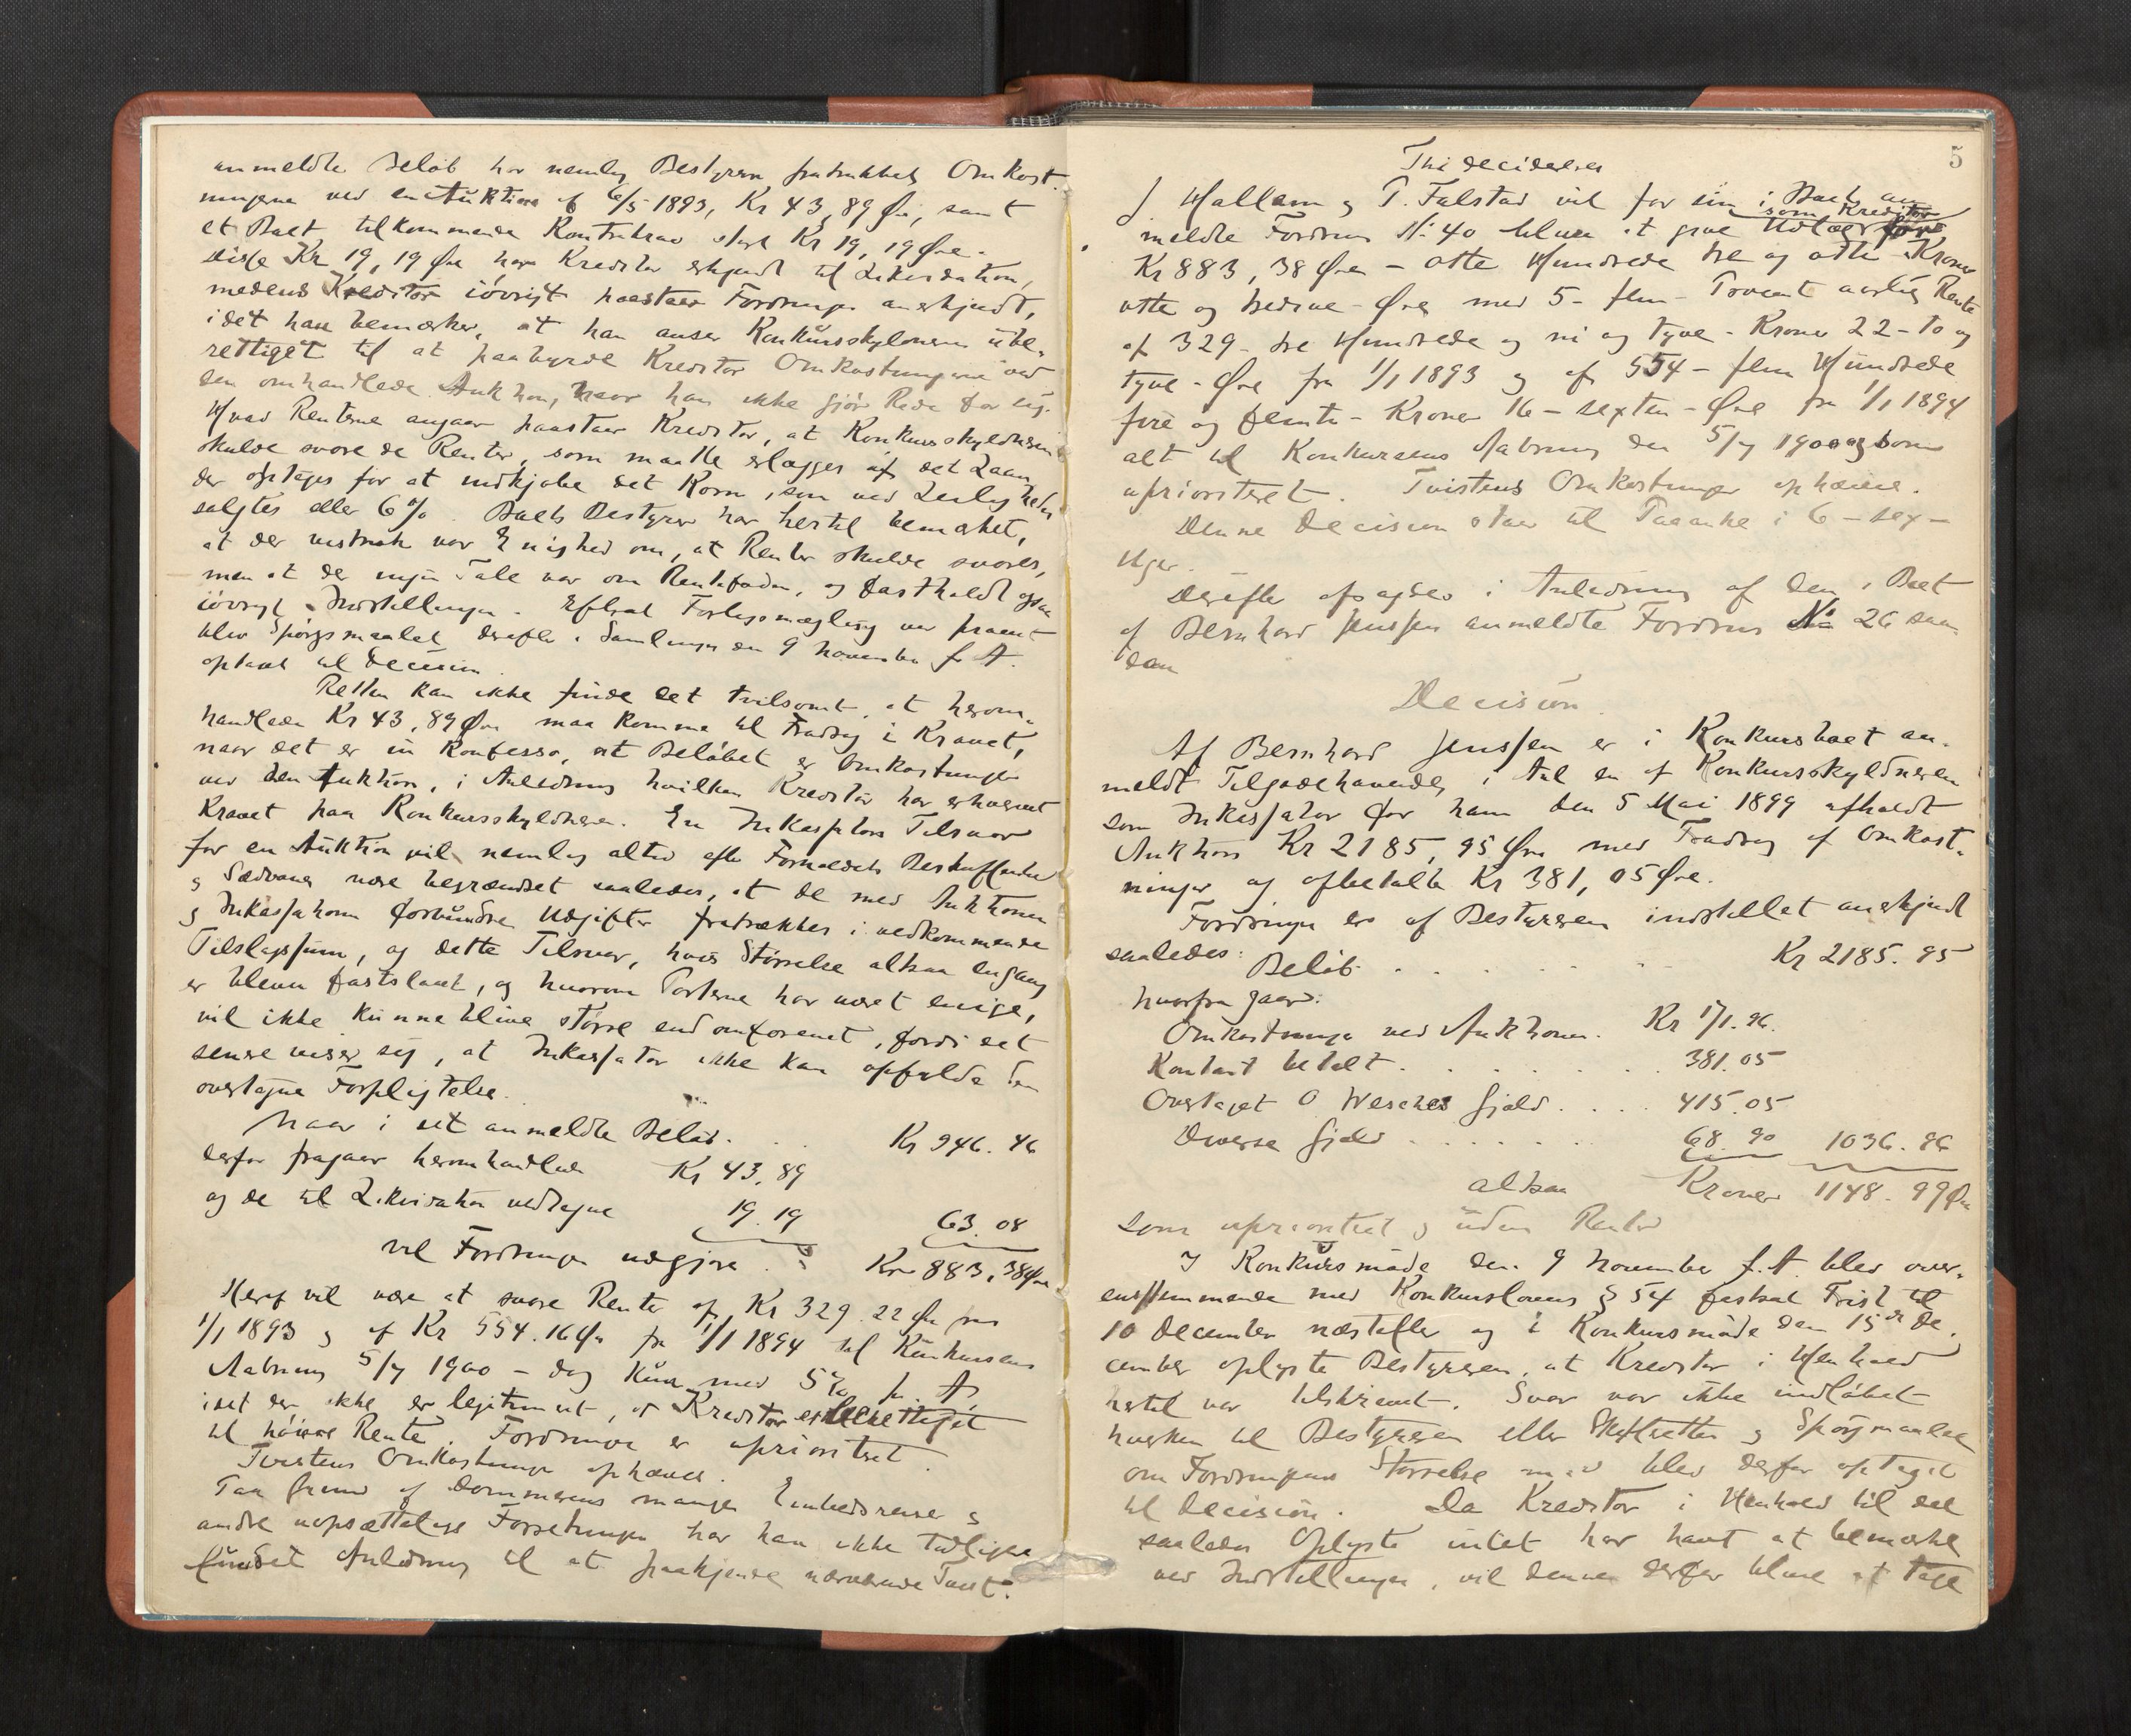 anmeldte Beløb har nemlig Bestyreren fratrukket Omkost-
ningerne ved en Auktion af 6/5 1893, Kr 43,89 Øre, samt
et Boet tilkommende Kontrakrav stort Kr 19,19 Øre.
Disse Kr 19,19 Øre har Kreditor erkjendt til Likvidation,
medens Kreditor iøvrigt paastaar Fordringen anerkjendt,
idet han bemærker, at han anser Konkursskyldneren ube-
rettiget til at paabyrde Kreditor Omkostningerne ved
den omhandlede Auktion, naar han ikke gjør Rede for sig.
Hvad Renterne angaar paastaar Kreditor, at Konkursskyldneren
skulde svare de Renter, som maatte erlægges af det Laan,
der optages for at indkjøbe det Korn, som ved Leilighed
solgtes eller 6%. Boets Bestyrer har hertil bemærket,
at der vistnok var Enighed om, at Renter skulde svares,
men at der ingen Tale var om Rentefoden, og fastholdt ogsaa
iøvrigt Indstillingen. Efterat Forligsmægling var prøvet
blev Spørgsmaalet derefter i Samlingen den 9 November f. A.
optaget til Decision.
Retten kan ikke finde det tvilsomt, at herom-
handlede Kr 43,89 Øre maa komme til Fradrag i Kravet,
naar det er in Konfesso, at Beløbet er Omkostninger
ved den Auktion, i Anledning hvilken Kreditor har erhvervet
Kravet paa Konkursskyldneren. En Inkassators Tilsvar
for en Auktion vil nemlig altid efter Forholdets Beskaffenhed
og Sædvane være begrændset saaledes, at de med Auktionen
og Inkassationen forbundne Udgifter fratrækkes i vedkommende
Tilslagssum, og dette Tilsvar, hvis Størrelse altsaa engang
er bleven fastslaaet, og hvorom Parterne har været enige,
vil ikke kunne blive større end omforenet, fordi det
senere viser sig, at Inkassator ikke kan opfylde den
overtagne Forpligtelse.
Naar i det anmeldte Beløb . . . Kr 946. 46
derfor fragaar heromhandlede Kr 43,89
og de til Likvidation vedtagne 19. 19 63. 08
vil Fordringen udgjøre . Kr 883,38 Øre
Heraf vil være at svare Renter af Kr 329. 22 Øre fra
1/1 1893 og af Kr 554.16 Øre fra 1/1 1894 til Konkursens
Aabning 5/7 1900 – dog kun med 5% p. A,
idet der ikke er legitimeret, at Kreditor er berettiget
til høiere Rente. Fordringen er uprioriteret.
Tvistens Omkostninger ophæves.
Paa Grund af Dommerens mange Embedsreiser og
andre uopsættelige Forretninger har han ikke tidligere
fundet Anledning til at paakjende nærværende Tvist.
5
Thi decideres
J Hallem og P. Falstad vil for sin i Boet an-
som Kreditor
meldte Fordring No 40 blive at give Udlæg for
Kr 883,38 Øre – otte Hundrede tre og otti Kroner
otte og tredive Øre med 5 – fem – Procent aarlig Rente
af 329 – tre Hundrede og ni og tyve – Kroner 22 – to og
tyve – Øre fra 1/1 1893 og af 554 – fem Hundrede
fire og femti – Kroner 16 – sexten – Øre fra 1/1 1894
alt til Konkursens Aabning den 5/7 1900 og som
uprioriteret. Tvistens Omkostninger ophæves.
Denne Decision staar til Paaanke i 6 – sex –
Uger.
Derefter afsagdes i Anledning af den i Boet
af Bernhard Jenssen anmeldte Fordring No 26 saa-
dan
Decision.
Af Bernhard Jenssen er i Konkursboet an-
meldt Tilgodehavende, i Anl en af Konkursskyldneren
som Inkassator for ham den 5 Mai 1899 afholdt
Auktion Kr 2185,95 Øre med Fradrag af Omkost-
ninger og afbetalte Kr 381,05 Øre.
Fordringen er af Bestyreren indstillet anerkjendt
saaledes:
Beløb . . . . . . Kr 2185. 95
hvorfra gaar:
Omkostninger ved Auktionen. Kr 171. 96.
Kontant betalt . . . . . . . 381. 05
Overtaget O. Wesches Gjæld . . . . 415. 05
Diverse Gjæld . . . . . . . 68. 90 1036. 96
altsaa Kroner 1148. 99 Øre
som uprioriteret og uden Renter
I Konkursmøde den 9 November f. A. blev over-
ensstemmende med Konkurslovens § 54 fastsat Frist til
10 December næstefter og i Konkursmøde den 15de De-
cember oplyste Bestyreren, at Kreditor i Henhold
hertil var tilskrevet. Svar var ikke indløbet
hverken til Bestyreren eller Skifteretten og Spørgsmaalet
om Fordringens Størrelse m. v. blev derfor optaget
til Decision. Da Kreditor i Henhold til det
saaledes Oplyste intet har havt at bemærke
ved Indstillingen, vil denne derfor blive at tage